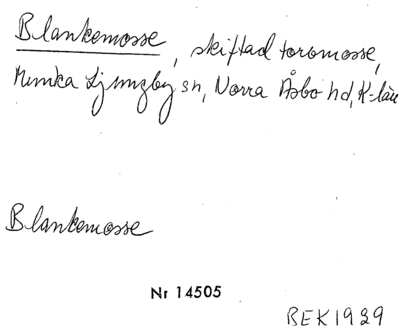 Blankemosse, skiftad toromosse,
Munka Ljungby sn, Norra Åsbo hd, K-län
Blankemosse
Nr 14505
BEK 1929